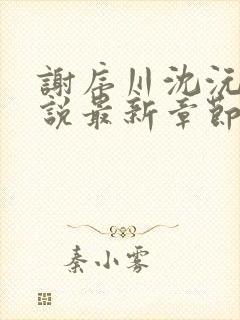 謝辰川沈沅
說最新章節
秦小雾